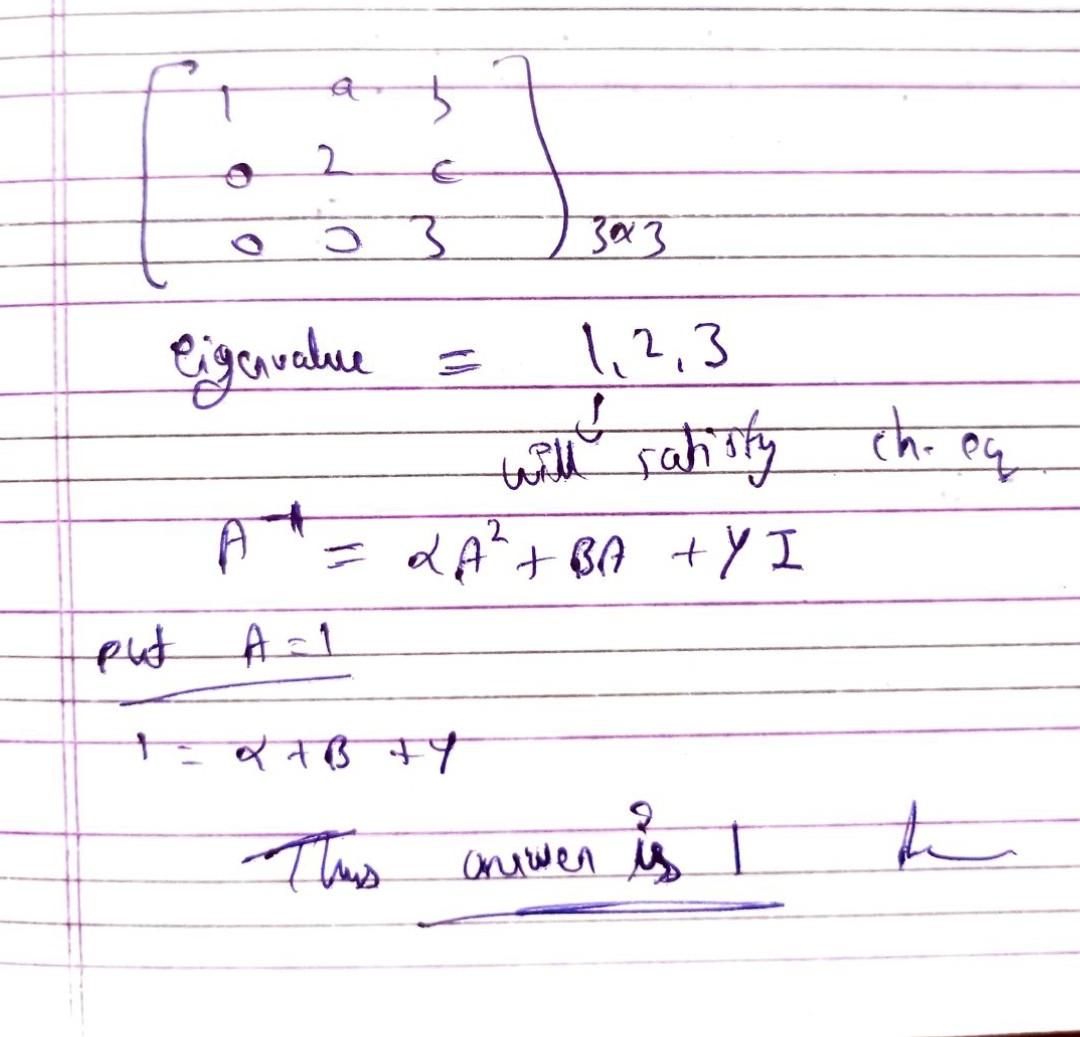 1 a b
0 2 c
0 0 3 3x3
eigenvalue = 1, 2, 3
will satisfy ch. eq
A⁻¹ = αA² + βA + γI
put A = 1
1 = α + β + γ
Thus answer is 1